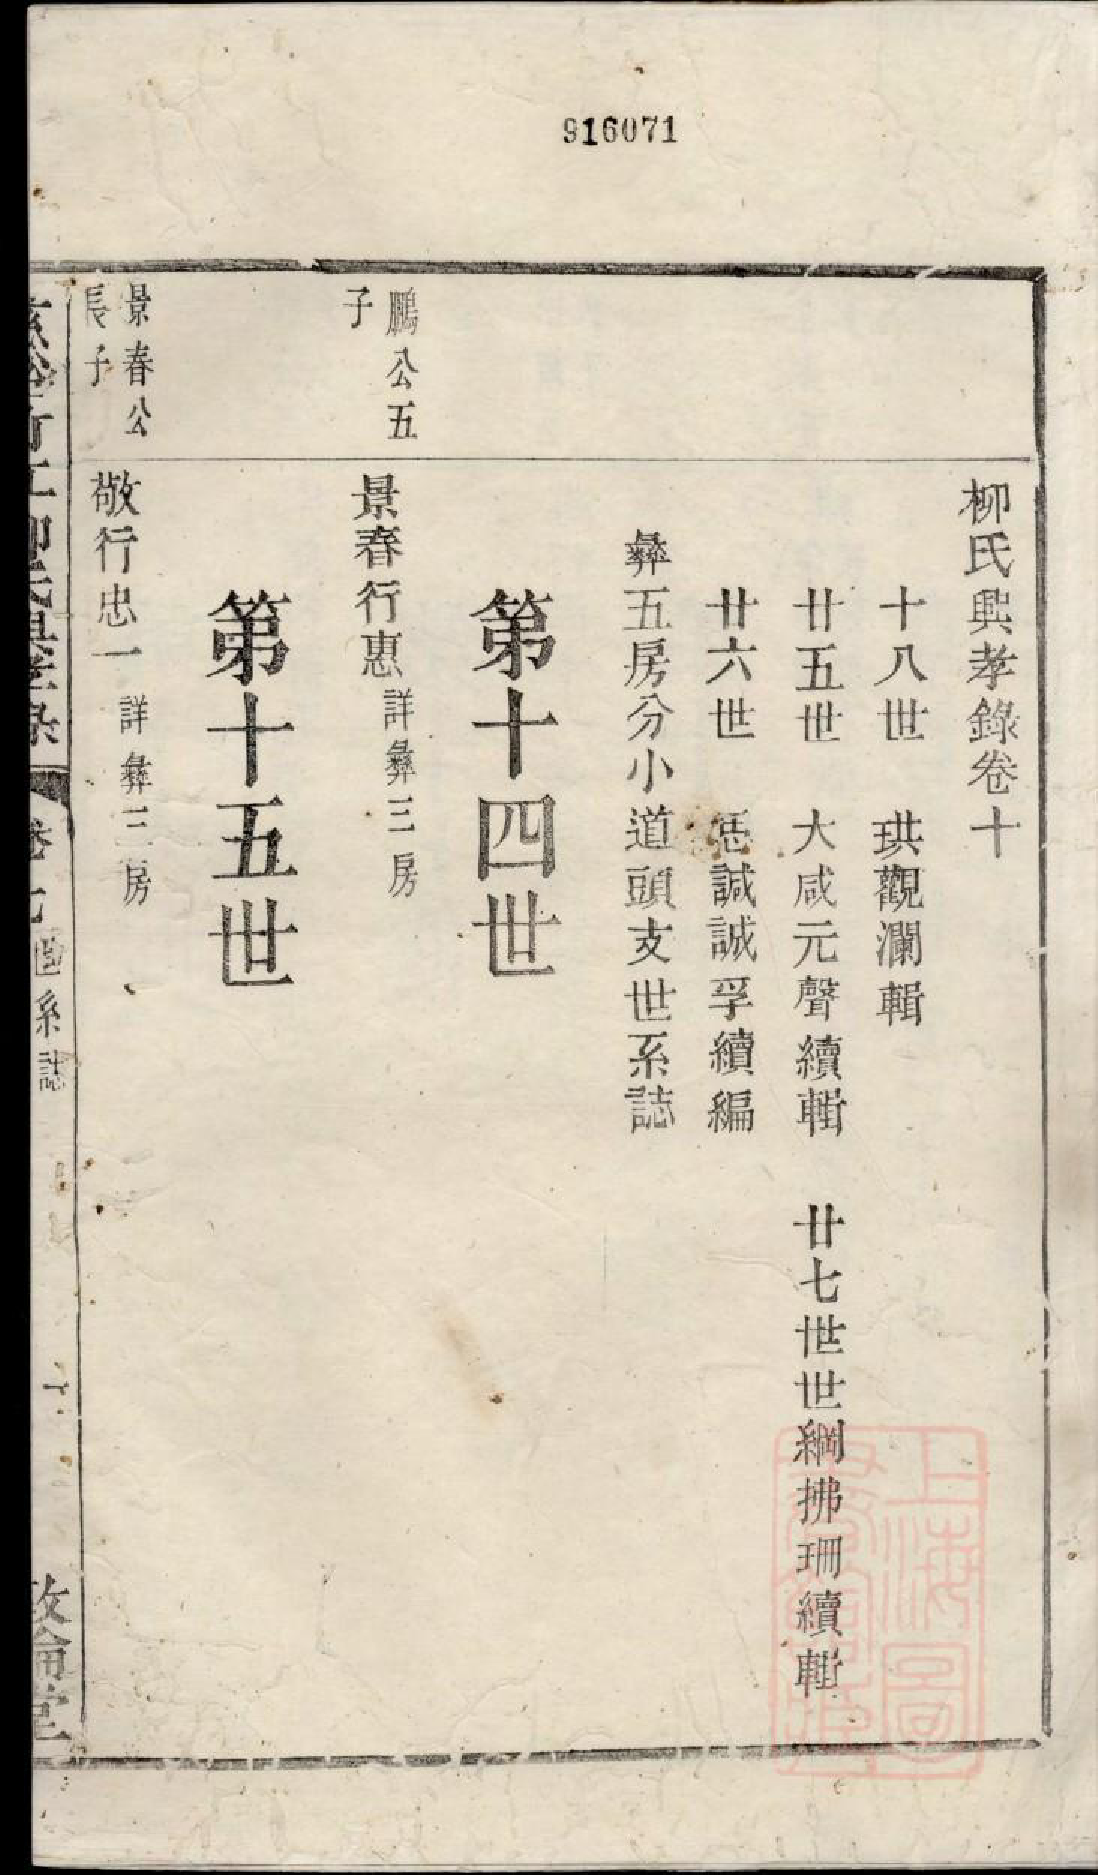 916071
柳氏興孝錄卷十
十八世 珙觀瀾輯
廿五世 大咸元聲續輯 廿七世世綱拂珊續輯
廿六世 誠誠孚續編
彝五房分小道頭支世系誌
第十四世
鵬公五
子
景春行惠 詳彝三房
第十五世
景春公
長子
敬行忠一 詳彝三房
柳氏興孝錄 卷七 世系誌
敦倫堂
上海圖
書館藏